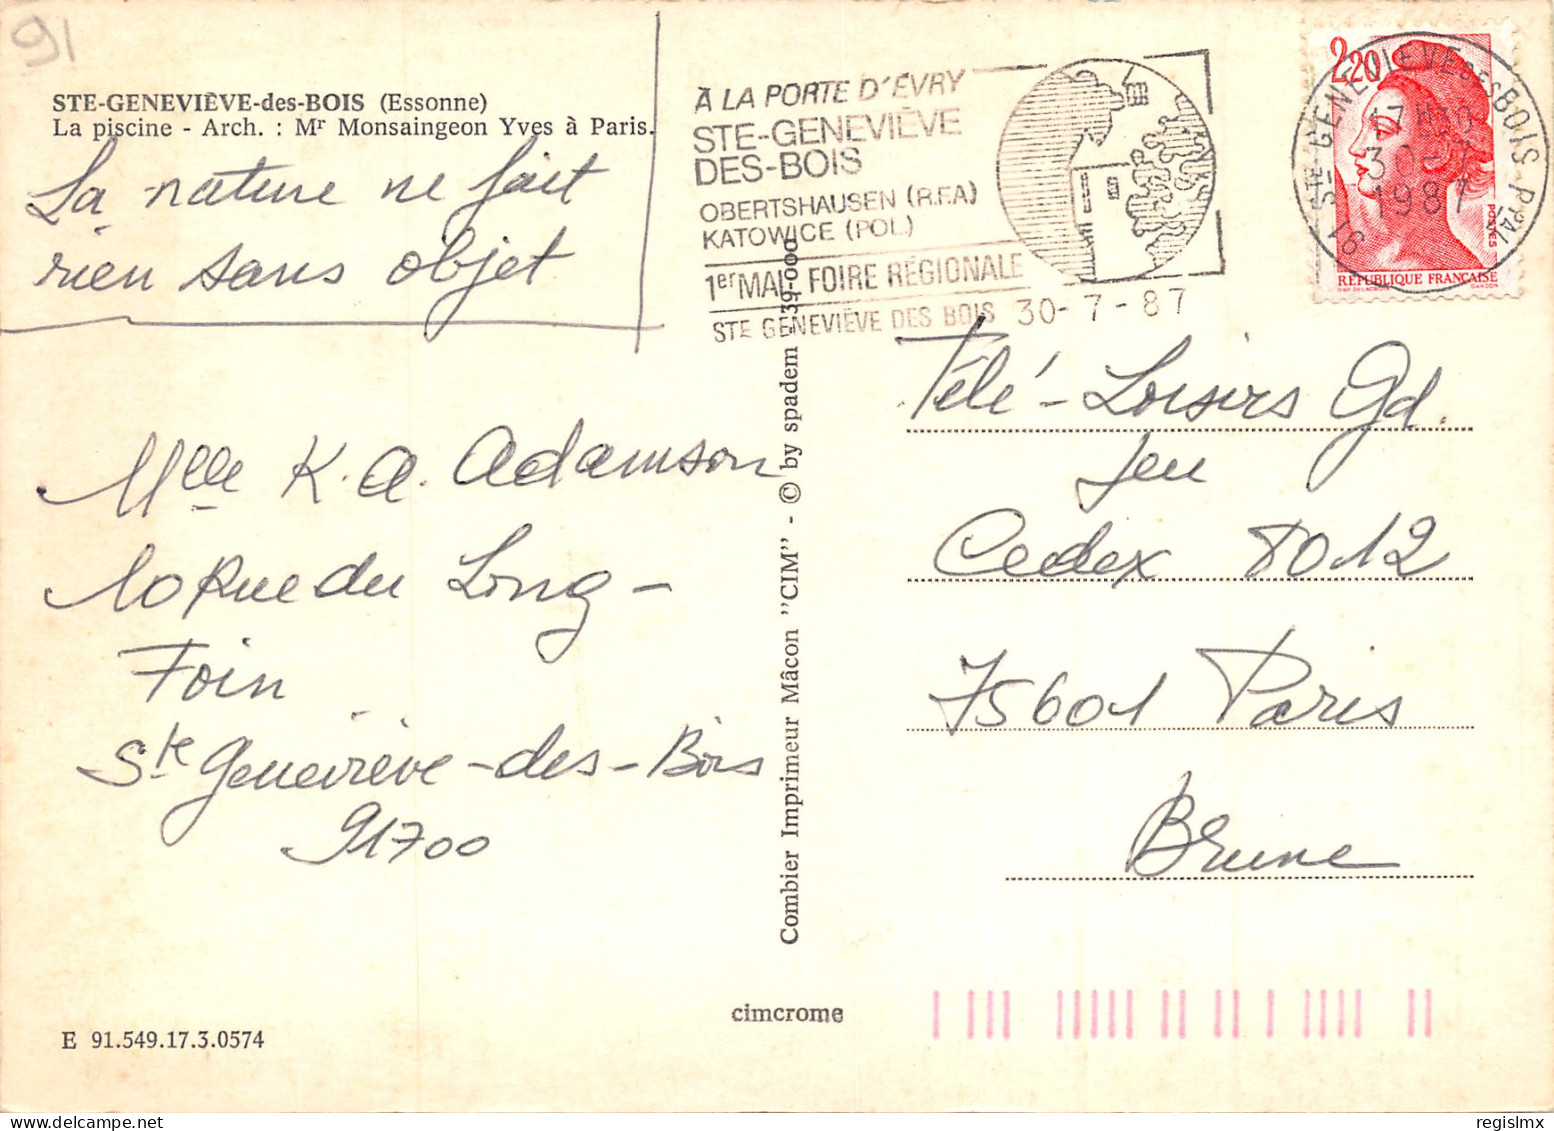 91
STE-GENEVIÈVE-des-BOIS (Essonne)
La piscine - Arch. : Mr Monsaingeon Yves à Paris.
La nature ne fait
rien sans objet
Mlle K. A. Adamson
10 Rue du Long-
Foin
Ste Geneviève-des-Bois
91700
E 91.549.17.3.0574
cimcrome
Combier Imprimeur Mâcon "CIM" - © by spadem
À LA PORTE D'ÉVRY
STE-GENEVIÈVE
DES-BOIS
OBERTSHAUSEN (R.F.A)
KATOWICE (POL)
1er MAI FOIRE RÉGIONALE
STE GENEVIÈVE DES BOIS 30-7-87
2,20
POSTES
RÉPUBLIQUE FRANÇAISE
91 STE GENEVIEVE DES BOIS PPAL
30-7
1987
Télé-Loisirs Gd.
Jeu
Cedex 8012
75601 Paris
Brune
regislmx